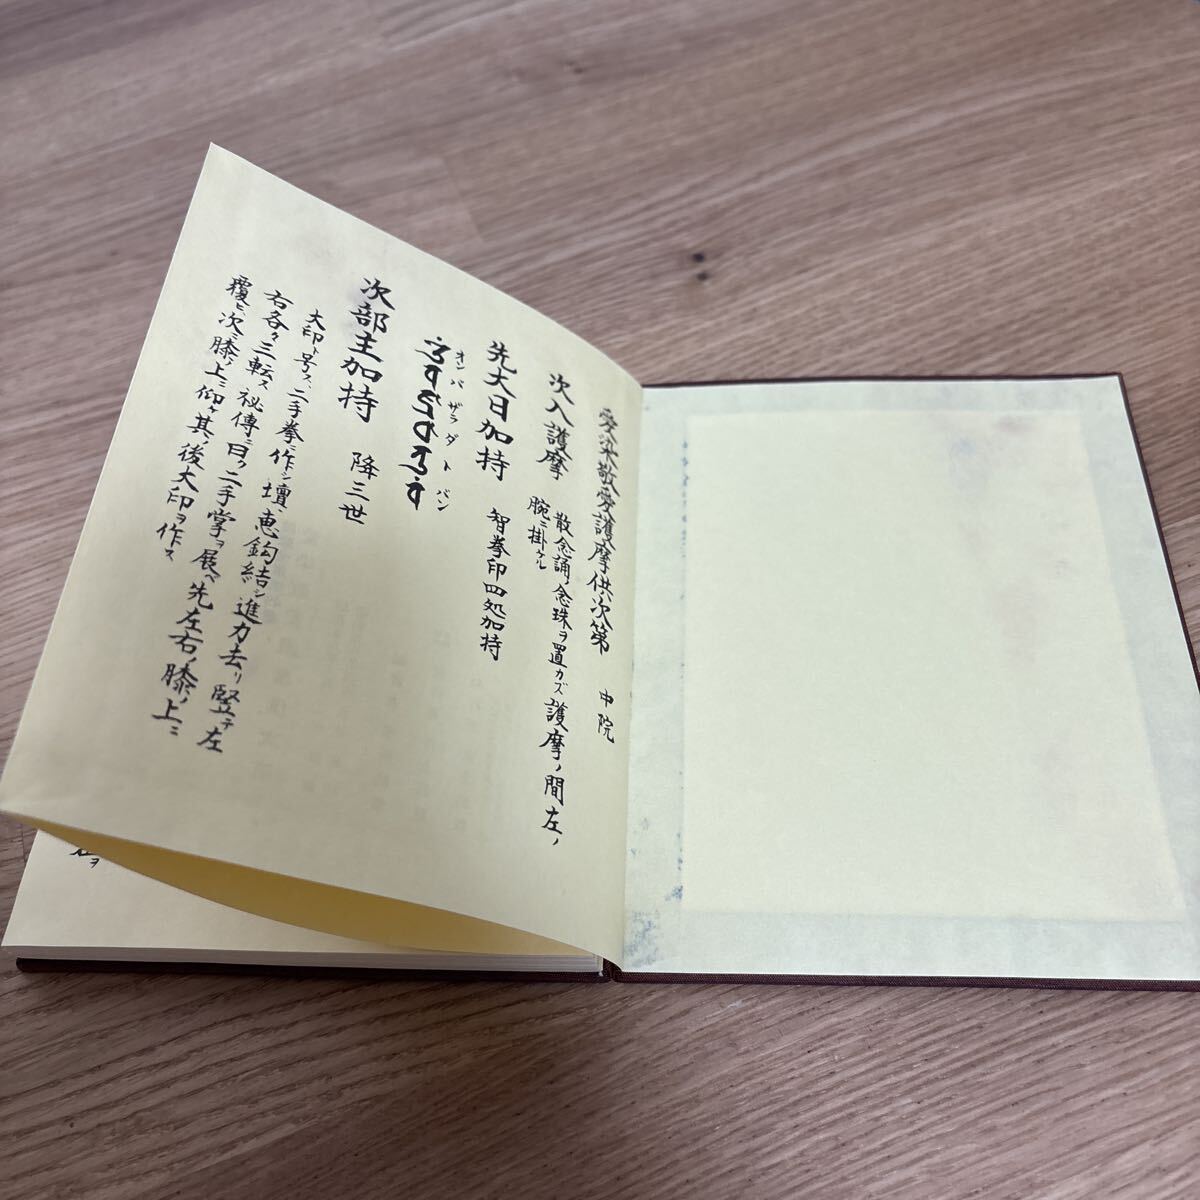 愛染敬愛護摩供次第　中院
次入護摩　散念誦ノ念珠ヲ置カズ護摩ノ間左ノ
腕ニ掛ケル
先大日加持　智拳印四処加持
オンバザラダトバン
次部主加持　降三世
大印ト号ス二手拳ニ作シ壇恵鈎結シ進力去リ竪テ左
右各々三転ス秘傳ニ曰ク二手掌ヲ展ベ先左右ノ膝ノ上ニ
覆ヒ次ニ膝ノ上ニ仰ケ其ノ後大印ヲ作ス